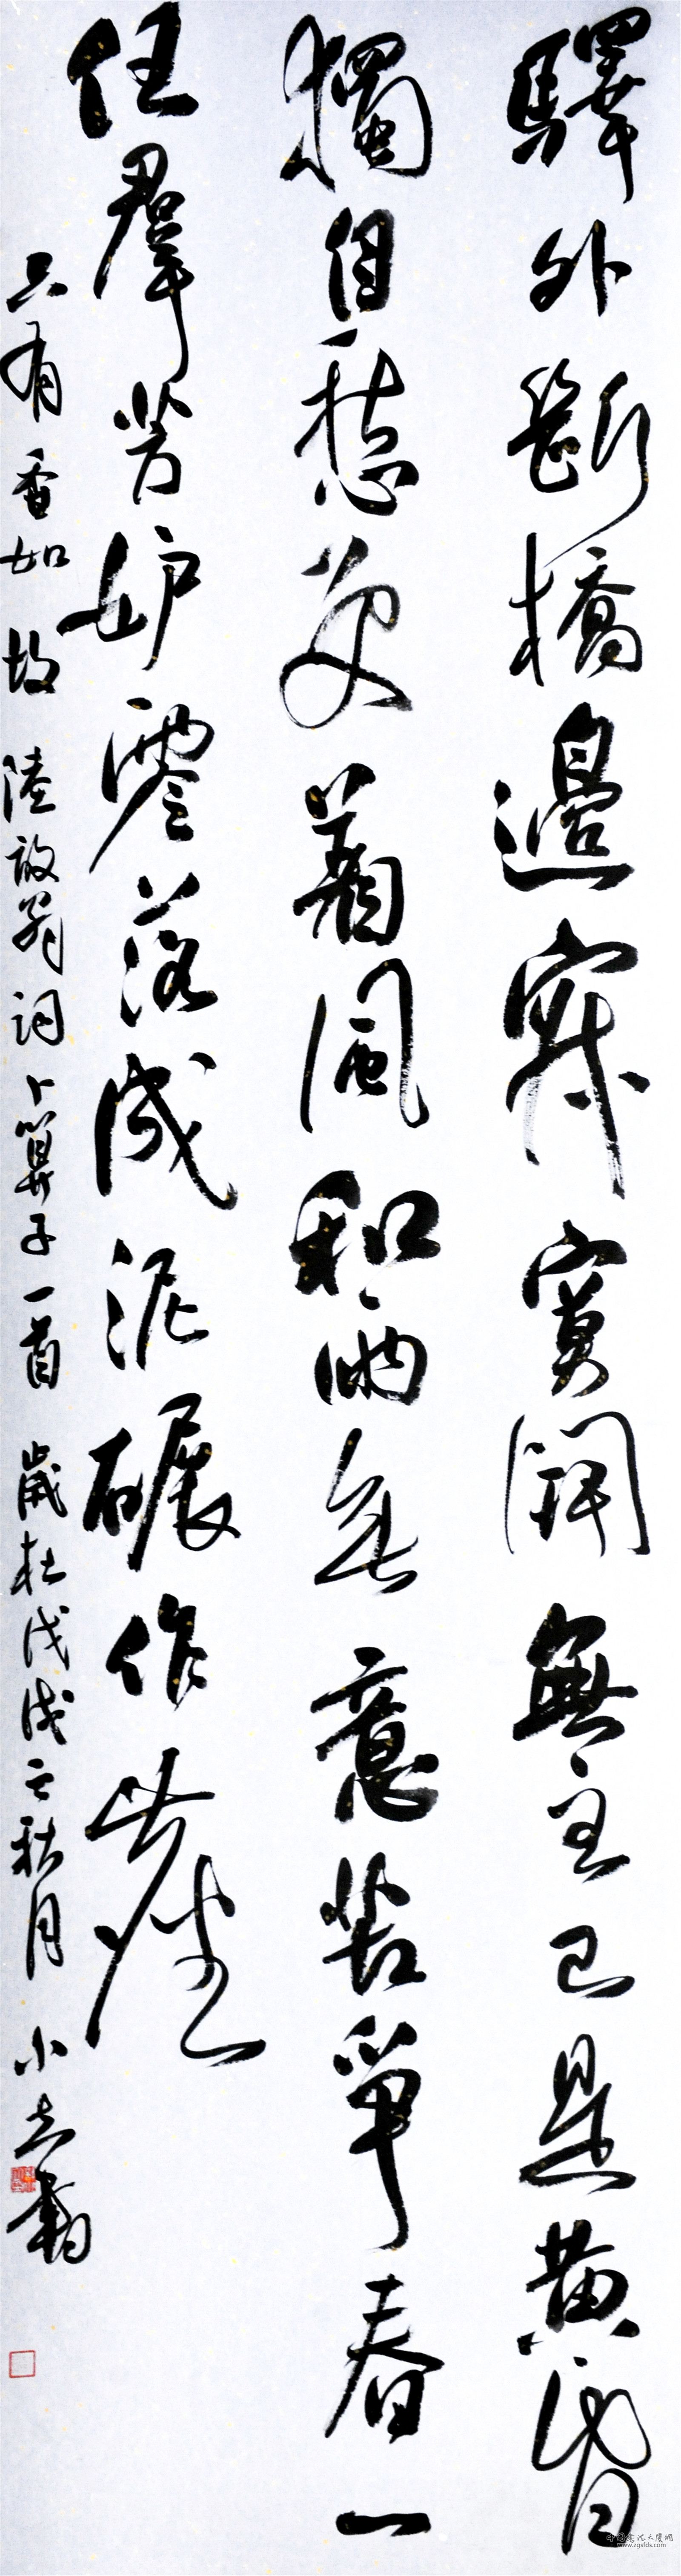 驛外斷橋邊寂寞開無主已是黃昏
獨自愁更著風和雨無意苦爭春一
任羣芳妒零落成泥碾作塵
只有香如故 陸放翁詞卜算子一首 歲在戊戌之秋月 小立書
www.zgsfds.com